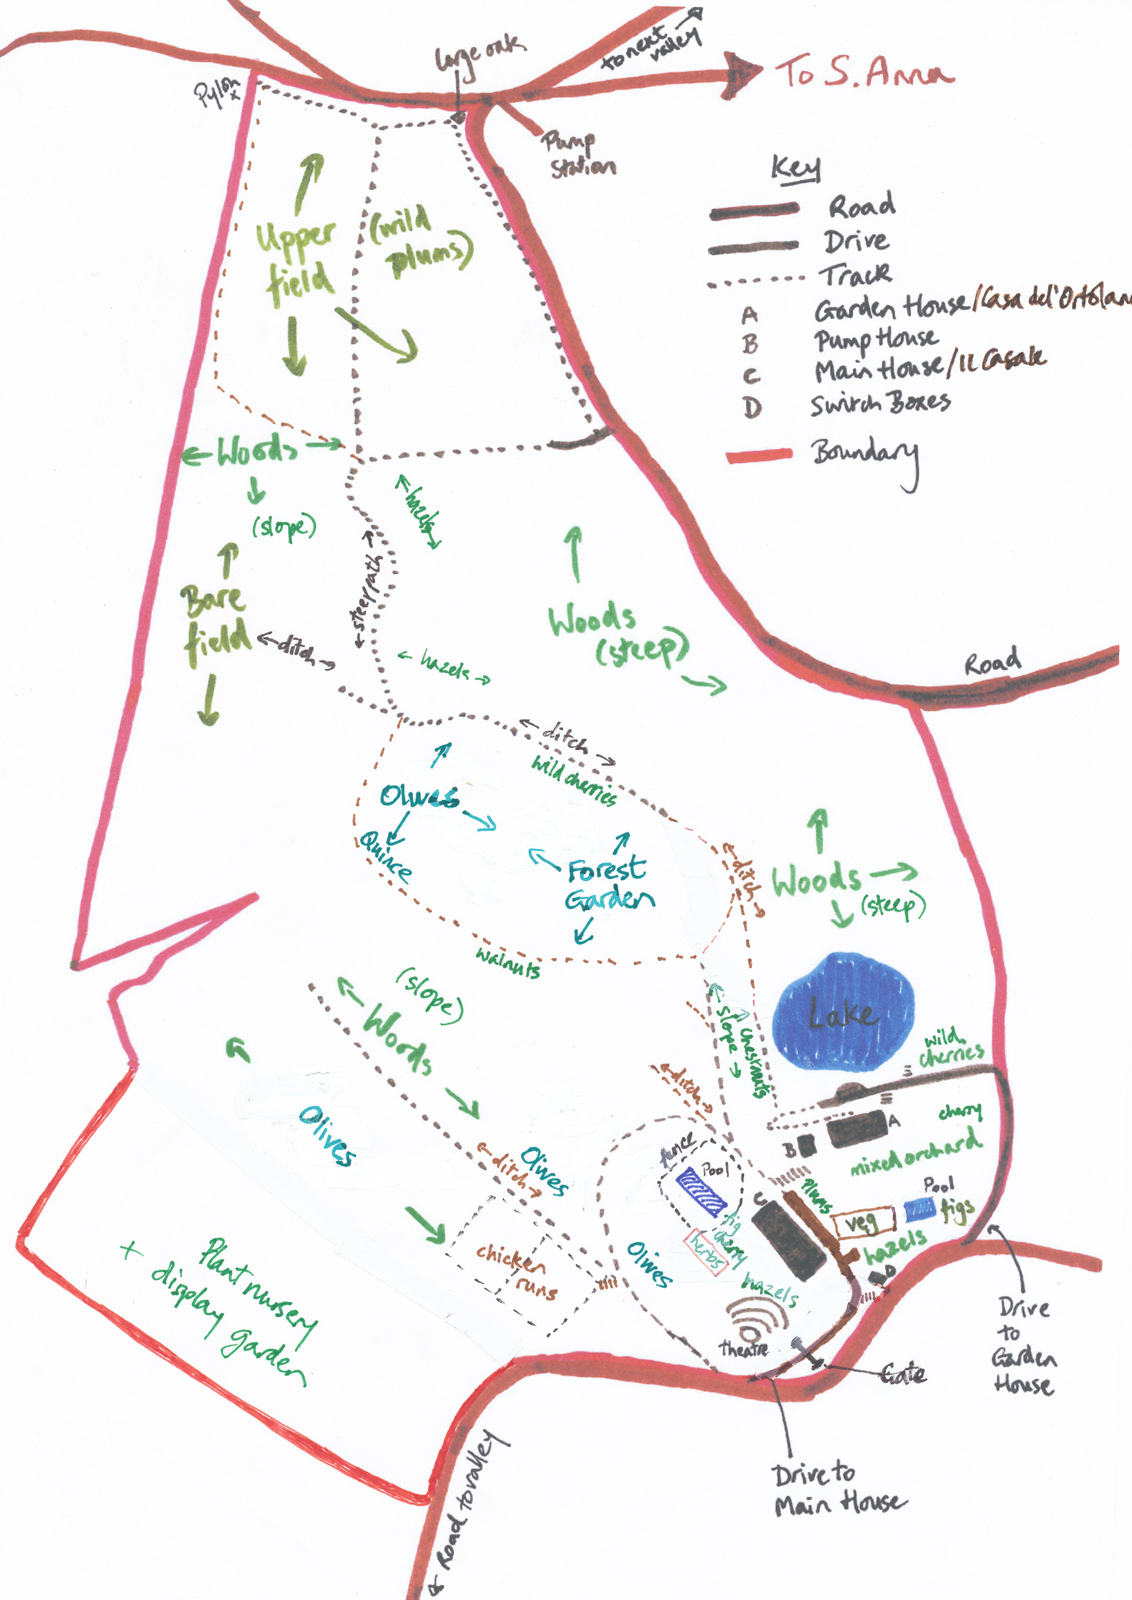 Large oak
to next
valley
To S. Anna
Pylon
x
Pump
Station
Key
Road
Drive
Track
A Garden House/Casa del'Ortolan
B Pump House
C Main House/Il Casale
D Switch Boxes
Boundary
Upper
field
(wild
plums)
Woods
(slope)
hazels
steep path
Bare
field
ditch
hazels
Woods
(steep)
Road
ditch
wild cherries
Olives
Quince
Forest
Garden
ditch
Woods
(steep)
walnuts
(slope)
Woods
slope
chestnuts
Lake
wild
cherries
ditch
A
cherry
B
mixed orchard
Olives
Olives
ditch
fence
Pool
C
plums
veg
Pool
figs
fig
cherry
herbs
hazels
hazels
D
Olives
chicken
runs
theatre
Gate
Plant nursery
+ display garden
Drive
to
Garden
House
Drive to
Main House
Road to valley